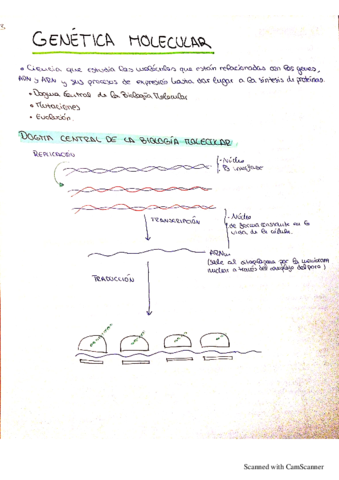 GENÉTICA MOLECULAR
• Ciencia que estudia las moléculas que están relacionadas con los genes,
ADN y ARN y sus procesos de expresión hasta dar lugar a la síntesis de proteínas.
• Dogma Central de la Biología Molecular
• Mutaciones
• Evolución.
DOGMA CENTRAL DE LA BIOLOGÍA MOLECULAR
REPLICACIÓN
- Núcleo
interfase
TRANSCRIPCIÓN
- Núcleo
de forma constante en la
vida de la célula.
ARNm
(Sale al citoplasma por la membrana
nuclear a través del complejo del poro)
TRADUCCIÓN
Scanned with CamScanner